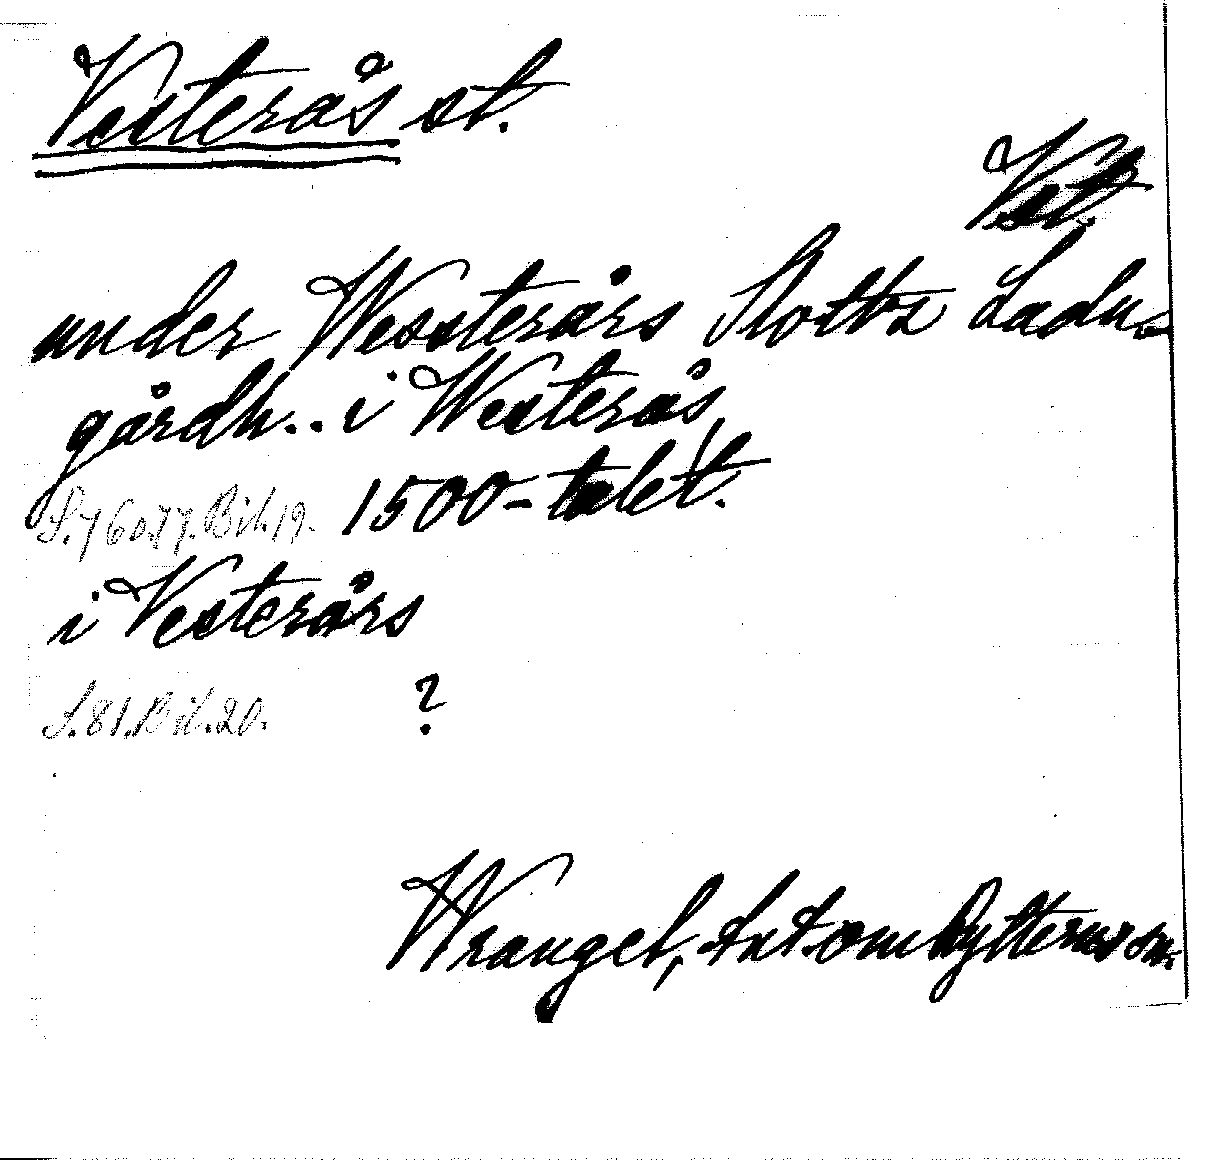 Vesterås st.
Vst.
under Wessterårs Slottz Ladu-
gårdh.. i Westerås
S.76o.77.Bil.19. 1500-talet.
i Vesterårs
S.81.Bil.20. ?
Wrangel, Ant. om Rytterne sn.